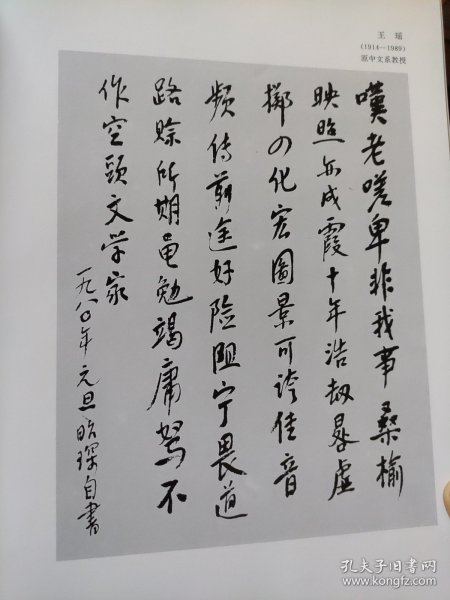 王 瑶
(1914—1989)
原中文系教授
嘆老嗟卑非我事桑榆
映照亦成霞十年浩劫晷虚
掷四化宏圖景可誇佳音
频传前途好险阻宁畏道
路赊所期黾勉竭庸驽不
作空頭文学家
一九八〇年元旦昭琛自書
孔夫子旧书网
www.kongfz.com